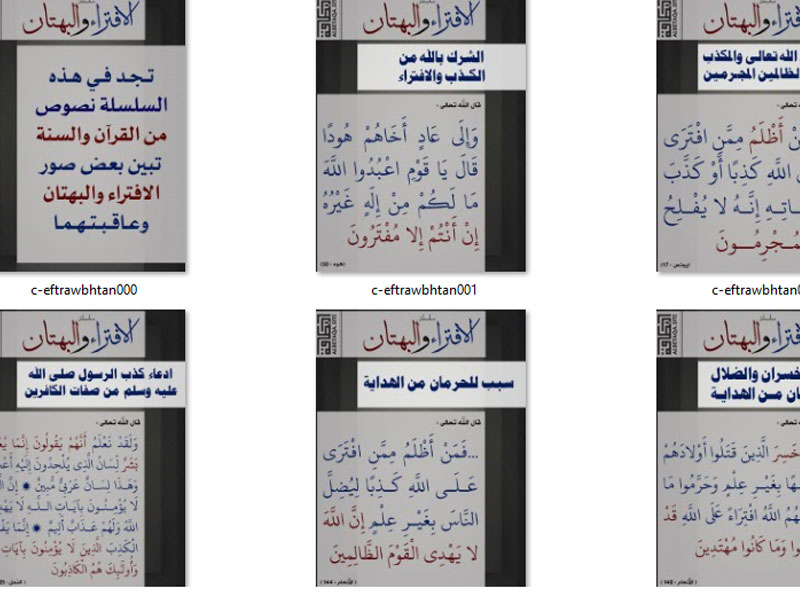 الافتراء والبهتان
تجد في هذه
السلسلة نصوص
من القرآن والسنة
تبين بعض صور
الافتراء والبهتان
وعاقبتهما
c-eftrawbhtan000
سلسلة
الافتراء والبهتان
ALBETAQA.SITE
الشرك بالله من
الكذب والافتراء
قال الله تعالى:
وَإِلَى عَادٍ أَخَاهُمْ هُودًا
قَالَ يَا قَوْمِ اعْبُدُوا اللَّهَ
مَا لَكُمْ مِنْ إِلَهٍ غَيْرُهُ
إِنْ أَنْتُمْ إِلا مُفْتَرُونَ
(هود: 50)
c-eftrawbhtan001
الافتراء والبهتان
ALBETAQA.SITE
الله تعالى والمكذب
الظالمين المجرمين
قال الله تعالى:
أَظْلَمُ مِمَّنِ افْتَرَى
اللَّهِ كَذِبًا أَوْ كَذَّبَ
إِنَّهُ لا يُفْلِحُ
(يونس: 17)
c-eftrawbhtan0
سلسلة
الافتراء والبهتان
ادعاء كذب الرسول صلى الله
عليه وسلم من صفات الكافرين
قال الله تعالى:
وَلَقَدْ نَعْلَمُ أَنَّهُمْ يَقُولُونَ إِنَّمَا
بَشَرٌ لِسَانُ الَّذِي يُلْحِدُونَ إِلَيْهِ
وَهَذَا لِسَانٌ عَرَبِيٌّ مُبِينٌ * إِنَّ
لَا يُؤْمِنُونَ بِآيَاتِ اللَّهِ لَا
اللَّهُ وَلَهُمْ عَذَابٌ أَلِيمٌ * إِنَّمَا
الْكَذِبَ الَّذِينَ لَا يُؤْمِنُونَ بِآيَاتِ
وَأُولَئِكَ هُمُ الْكَاذِبُونَ
سلسلة
الافتراء والبهتان
ALBETAQA.SITE
سبب للحرمان من الهداية
قال الله تعالى:
...فَمَنْ أَظْلَمُ مِمَّنِ افْتَرَى
عَلَى اللَّهِ كَذِبًا لِيُضِلَّ
النَّاسَ بِغَيْرِ عِلْمٍ إِنَّ اللَّهَ
لا يَهْدِي الْقَوْمَ الظَّالِمِينَ
(الأنعام: 144)
سلسلة
الافتراء والبهتان
ALBETAQA.SITE
خسران والضلال
من الهداية
قال الله تعالى:
خَسِرَ الَّذِينَ قَتَلُوا أَوْلادَهُمْ
بِغَيْرِ عِلْمٍ وَحَرَّمُوا مَا
اللَّهُ افْتِرَاءً عَلَى اللَّهِ قَدْ
وَمَا كَانُوا مُهْتَدِينَ
(الأنعام: 140)